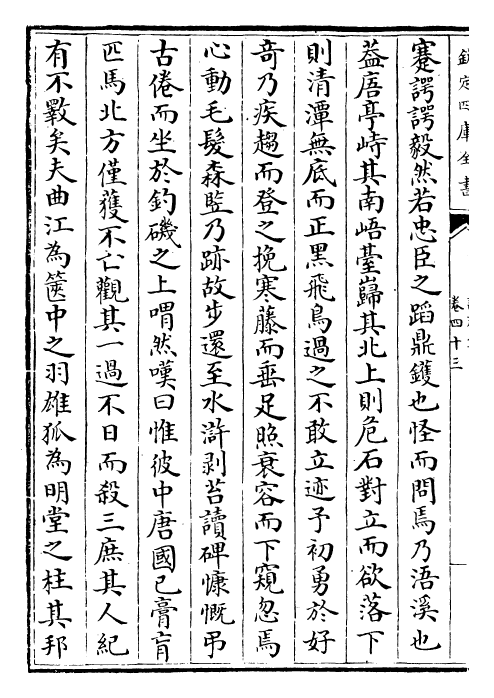 欽定四庫全書
卷四十三
蹇諤諤毅然若忠臣之蹈鼎鑊也怪而問焉乃浯溪也
葢唐亭峙其南峿臺巋其北上則危石對立而欲落下
則清潭無底而正黑飛鳥過之不敢立迹予初勇於好
奇乃疾趨而登之挽寒藤而垂足照衰容而下窺忽焉
心動毛髮森竪乃跡故步還至水滸剥苔讀碑慷慨弔
古倦而坐於釣磯之上喟然嘆曰惟彼中唐國已膏肓
匹馬北方僅獲不亡觀其一過不日而殺三庶其人紀
有不斁矣夫曲江為篋中之羽雄狐為明堂之柱其邦